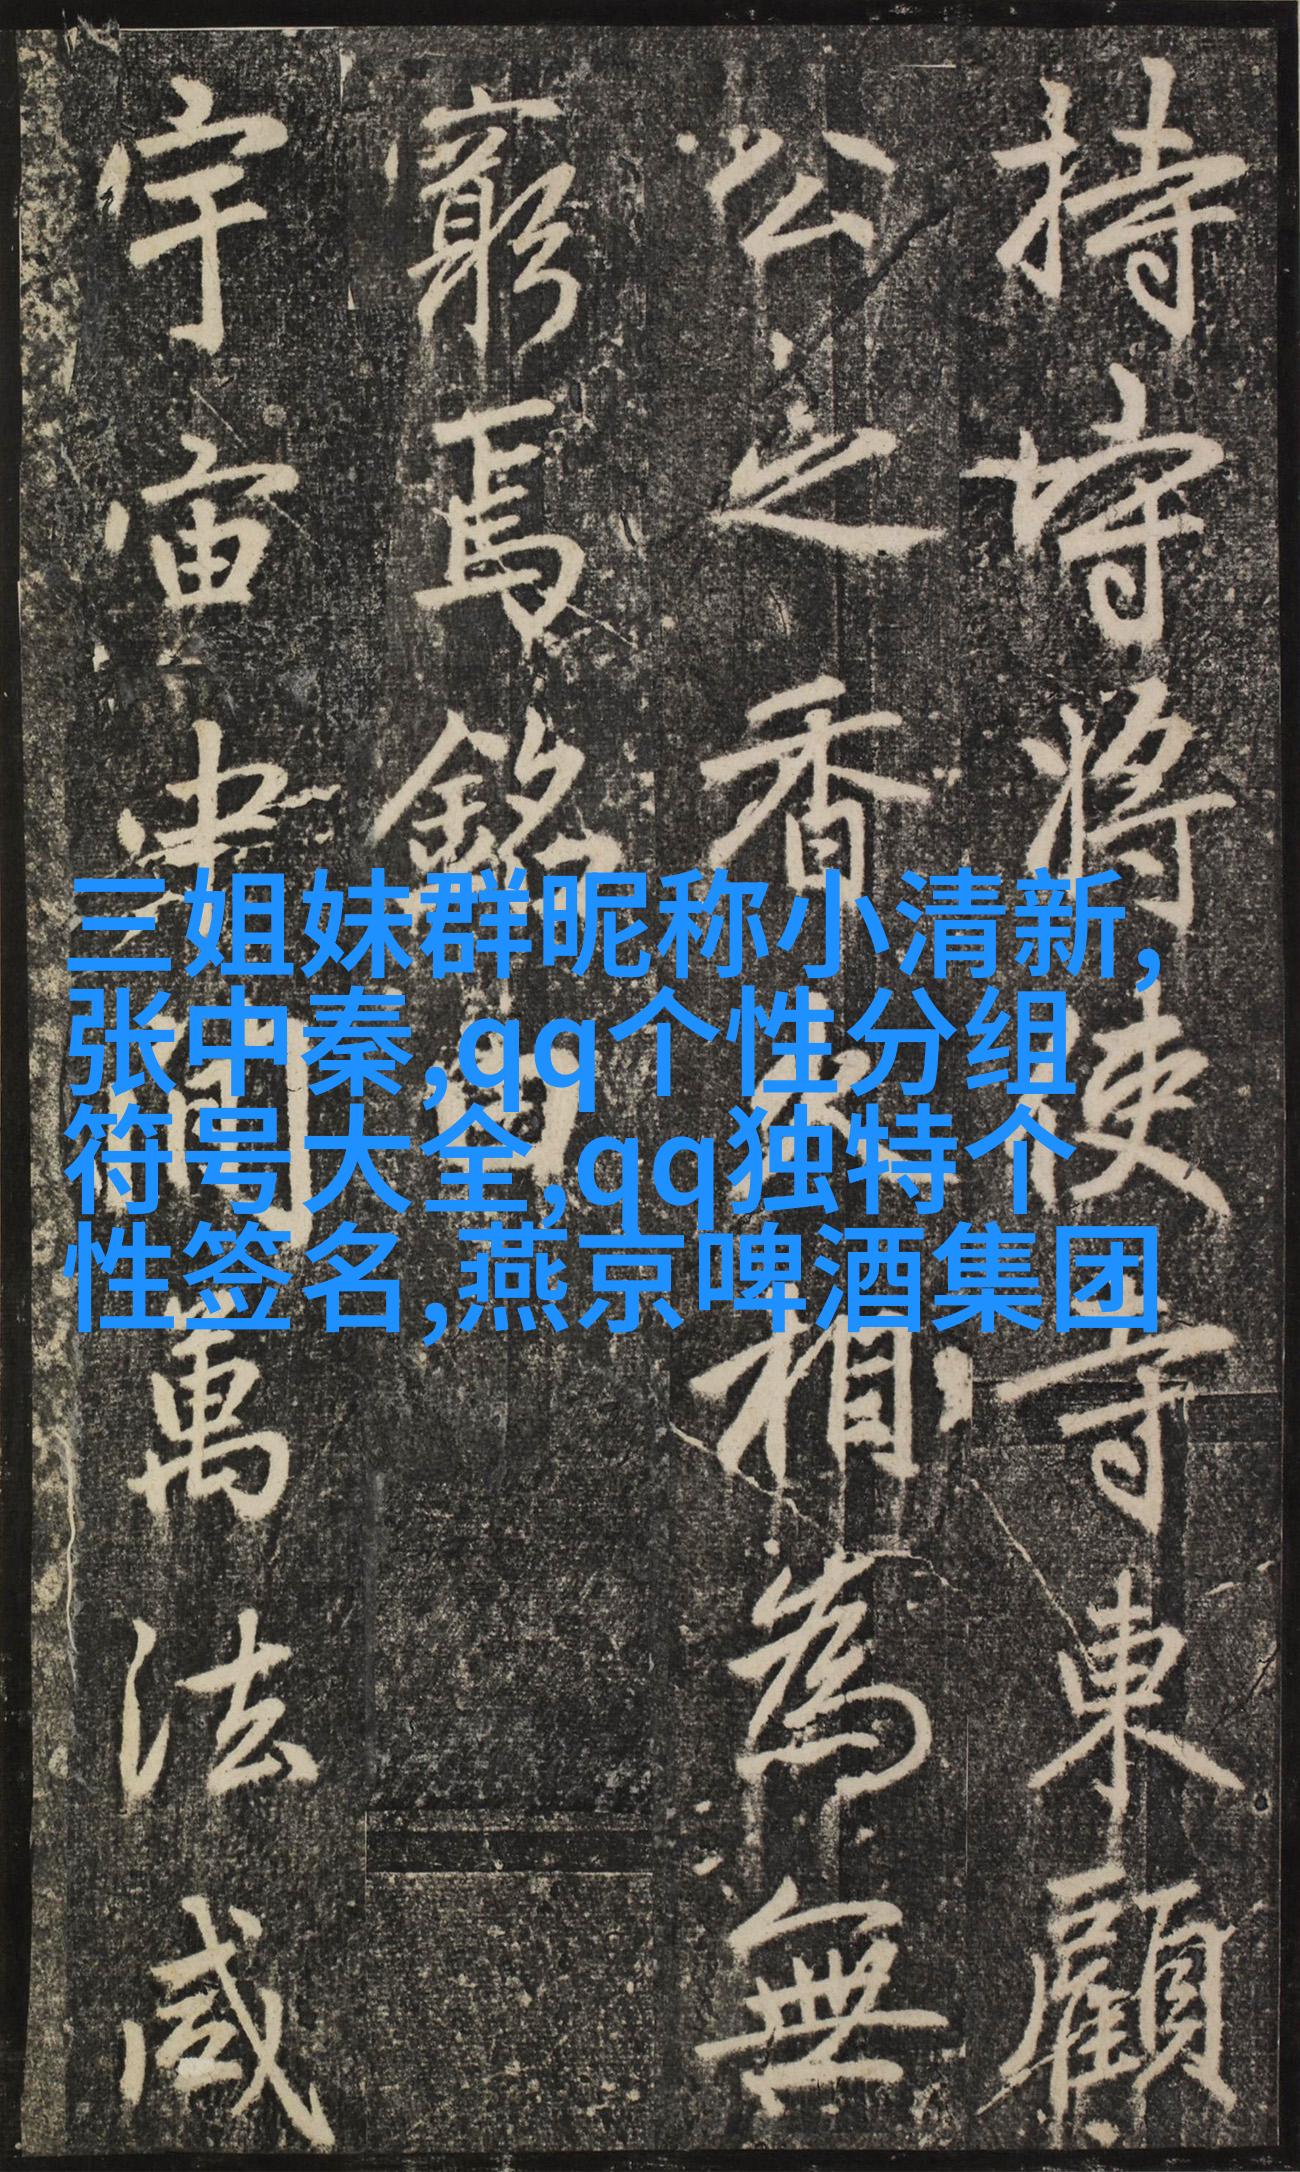 持將使寺東顧
公之香相為無
窮焉銘曰
宇宙萬法咸
三姐妹群昵称小清新,
张中秦,qq个性分组
符号大全,qq独特个
性签名,燕京啤酒集团